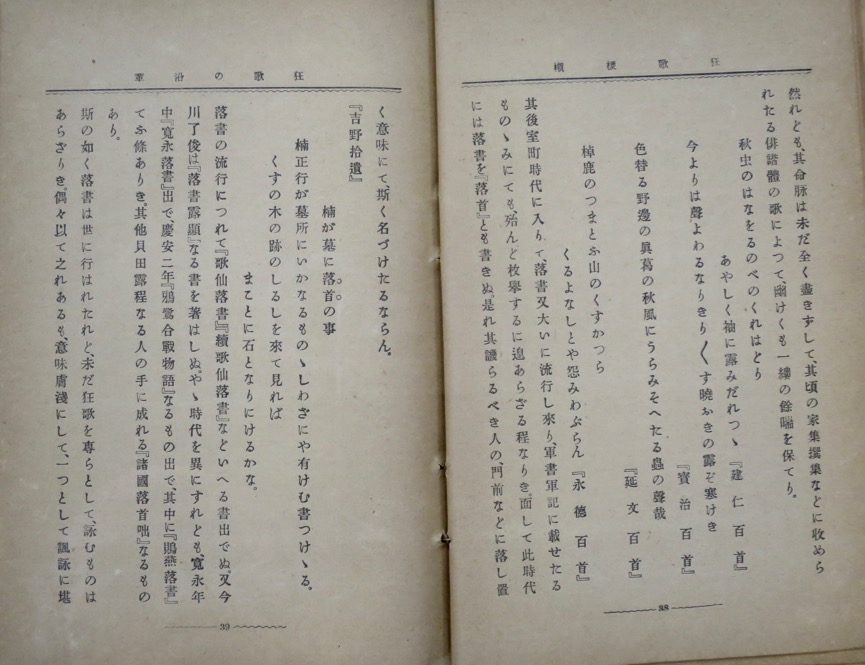 狂歌様順
然れども、其命脉は未だ全く盡きずして、其頃の家集撰集などに收めら
れたる俳諧體の歌によつて、幽けくも一縷の餘喘を保てり。
秋虫のはなをるのべのくれはどり
あやしく袖に露みだれつゝ『建仁百首』
今よりは聲よわるなりきり〱す曉おきの露ぞ寒けき
『寳治百首』
色替る野邊の眞葛の秋風にうらみそへたる蟲の聲哉
『延文百首』
棹鹿のつまとふ山のくすかつら
くるよなしとや怨みわぶらん『永德百首』
其後室町時代に入りて、落書又大いに流行し來り、軍書軍記に載せたる
ものゝみにても、殆んど枚擧するに遑あらざる程なりき。而して此時代
には落書を『落首』とも書きぬ。是れ其譏らるべき人の、門前などに落し置
38
狂歌の沿革
く意味にて、斯く名づけたるならん。
『吉野拾遺』
楠が墓に落首の事
楠正行が墓所にいかなるものゝしわざにや有けむ書つけゝる。
くすの木の跡のしるしを來て見れば
まことに石となりにけるかな。
落書の流行につれて『歌仙落書』『續歌仙落書』などいへる書出でぬ。又今
川了俊は『落書露顯』なる書を著はしぬ。やゝ時代を異にすれども、寛永年
中『寛永落書』出で、慶安二年『鴉鷺合戰物語』なるもの出で、其中に『鵙燕落書』
てふ條ありき。其他貝田露程なる人の手に成れる『諸國落首咄』なるもの
あり。
斯の如く落書は世に行はれたれど、未だ狂歌を專らとして、詠むものは
あらざりき。偶々以て之れあるも、意味膚淺にして、一つとして諷詠に堪
39